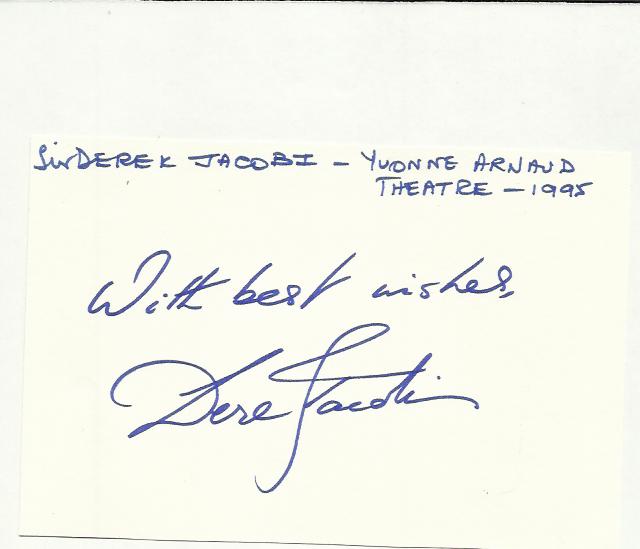 Sir DEREK JACOBI – YVONNE ARNAUD
THEATRE – 1995
With best wishes,
Derek Jacobi